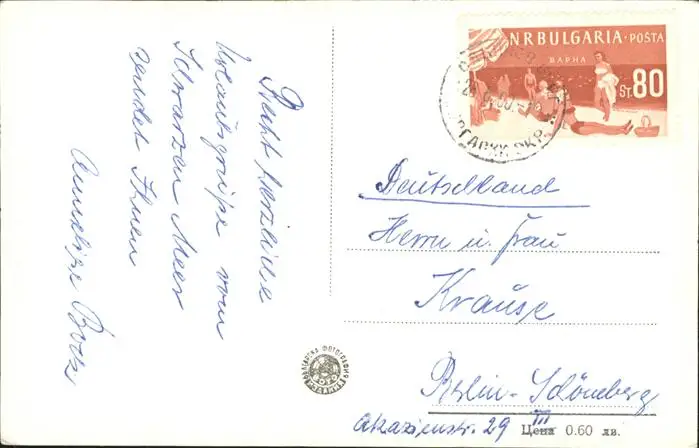 Recht herzliche
Urlaubsgrüße vom
Schwarzen Meer
sendet Ihnen
Annelise
N R BULGARIA · POŠTA
ВАРНА
ST. 80
Deutschland
Herrn u. Frau
Krause
Berlin-Schöneberg
Akazienstr. 29 III
Цена 0.60 лв.
БЪЛГАРСКА ФОТОГРАФИЯ